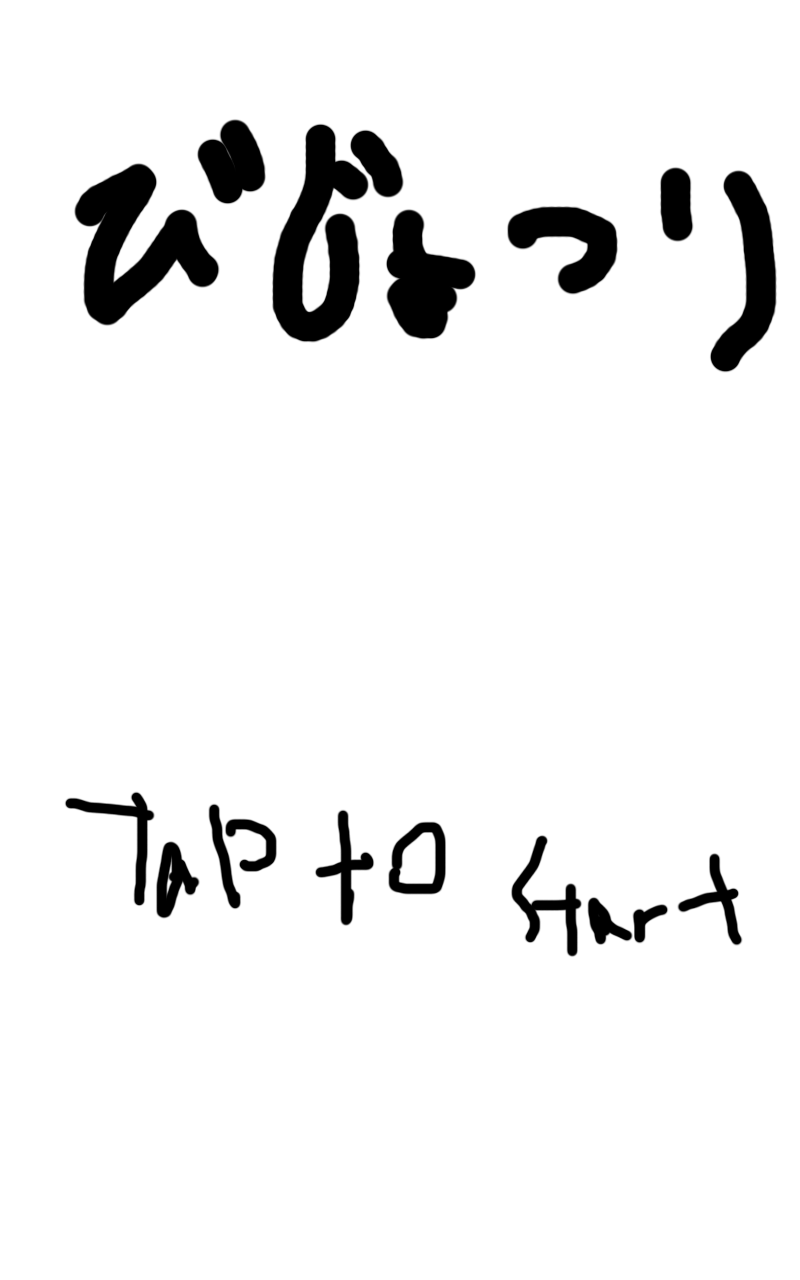 びじょつり
Tap to Start